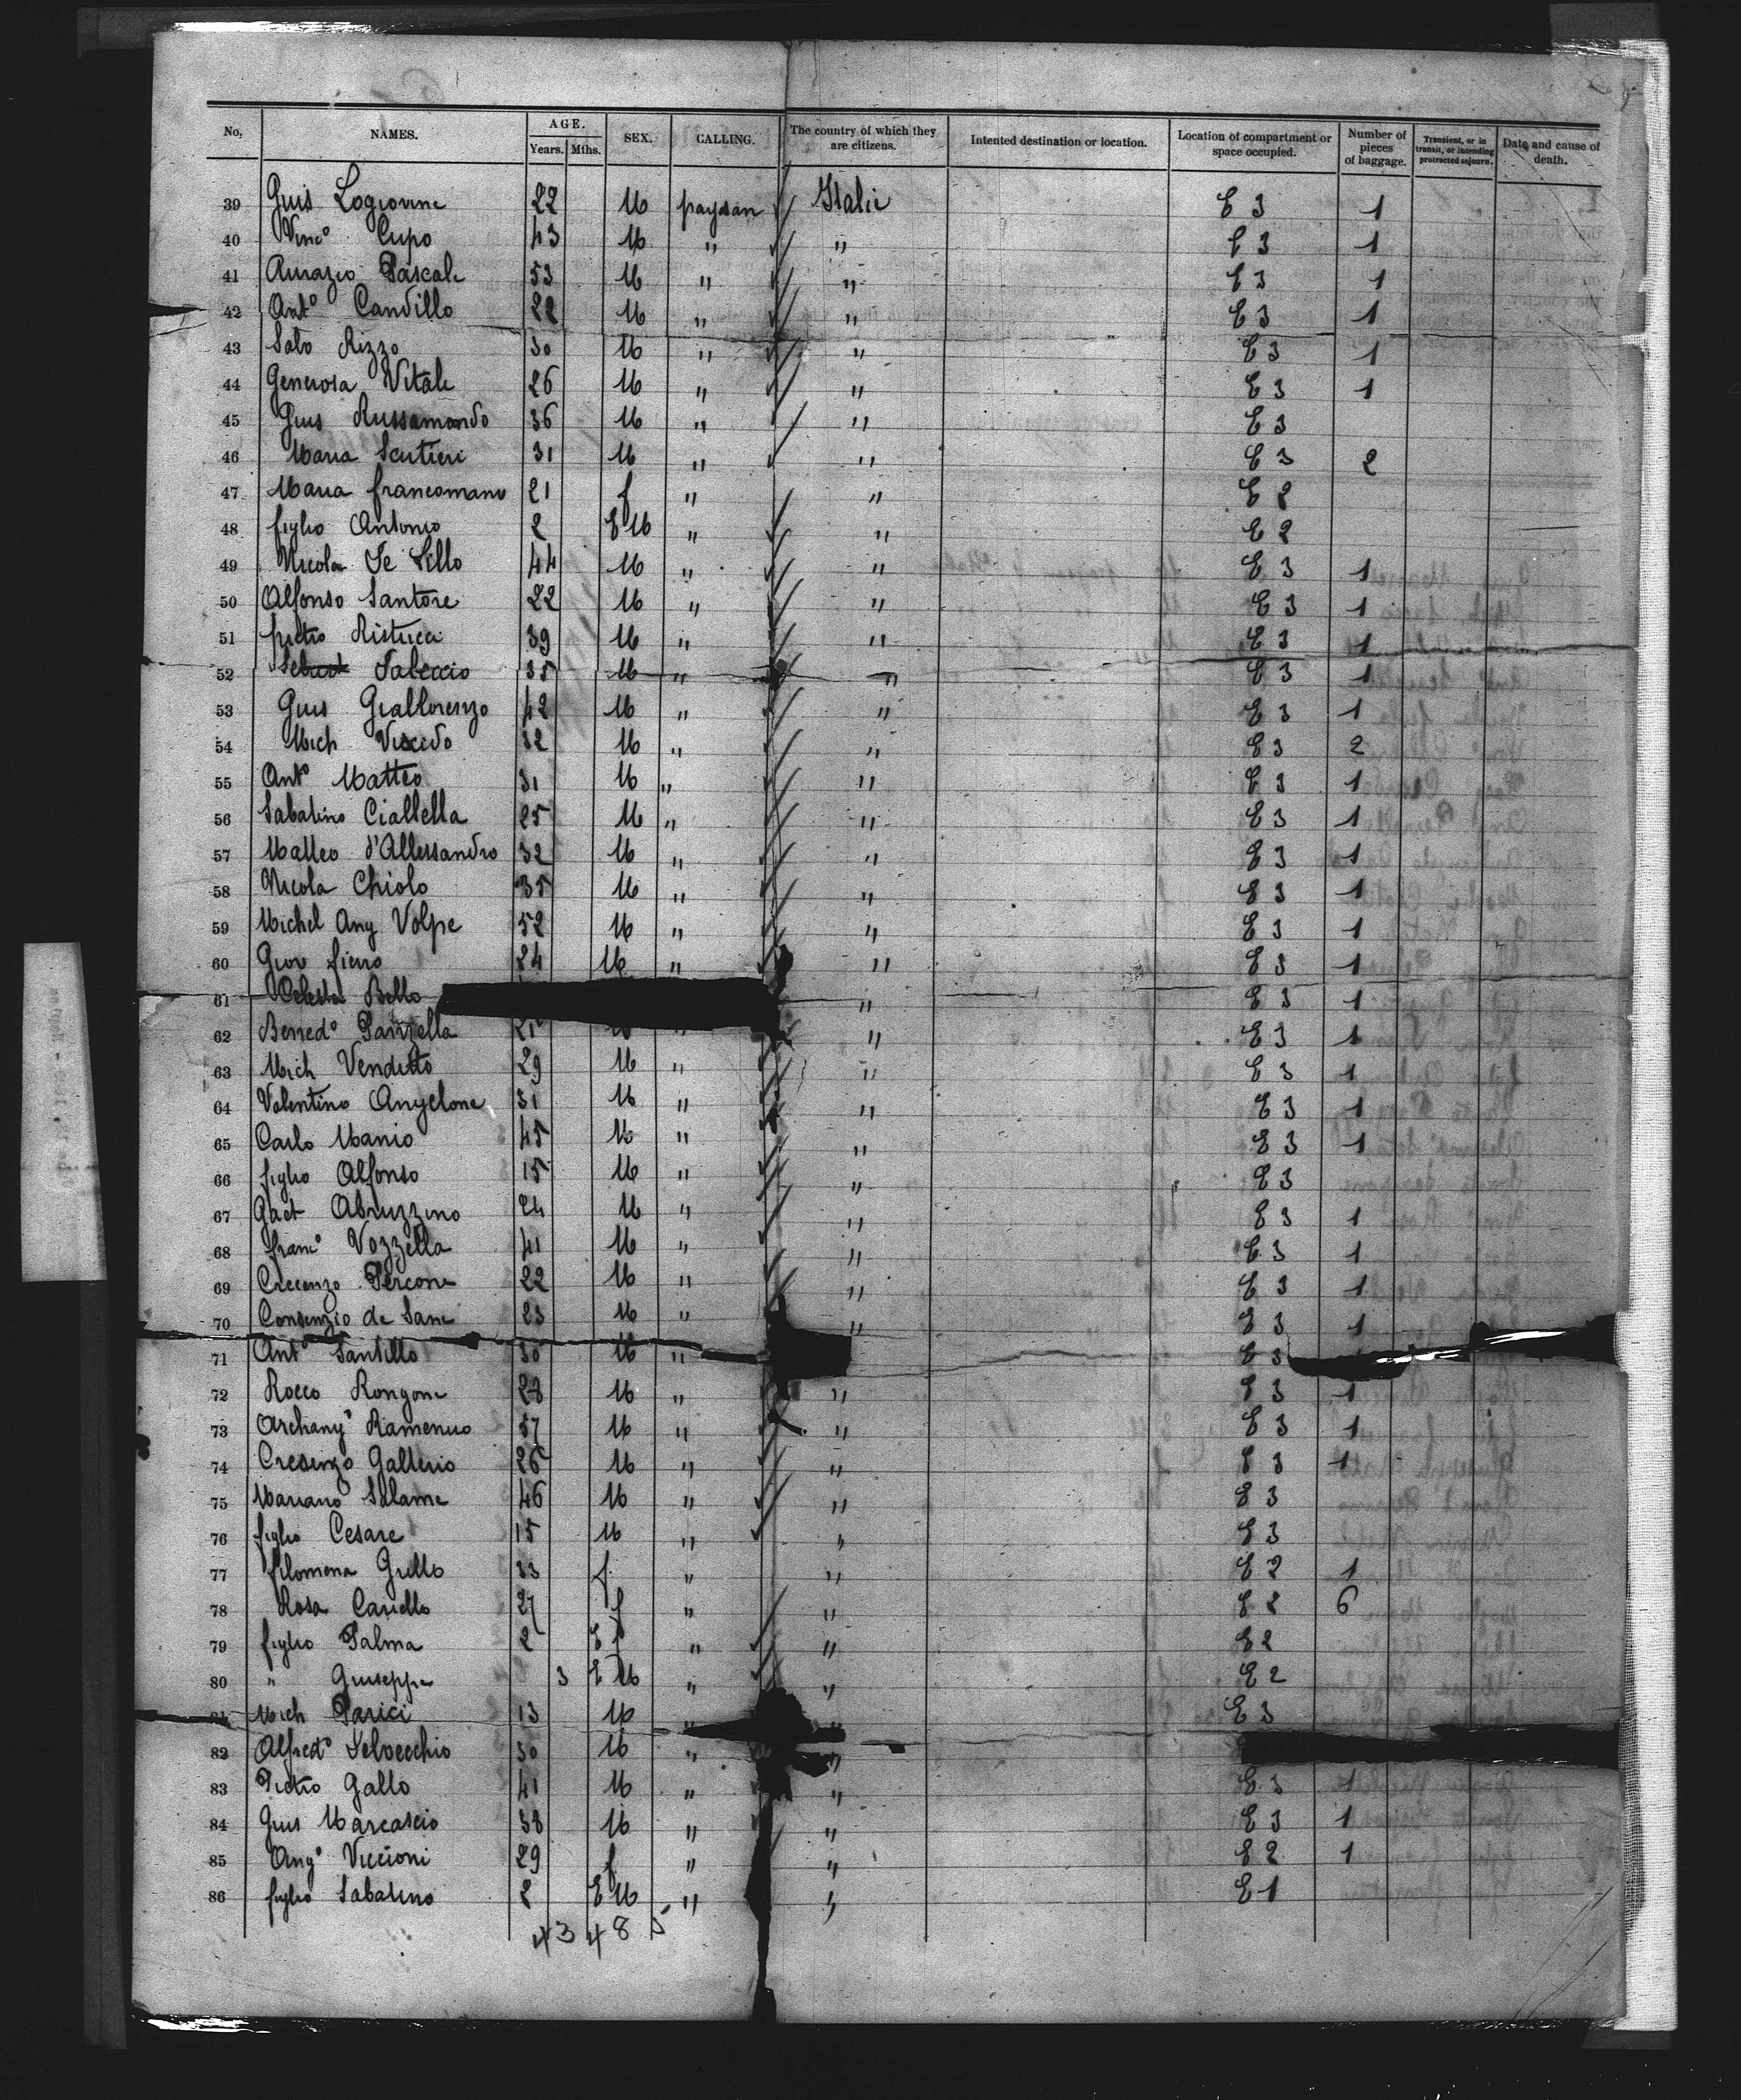 No. NAMES. AGE. Years. Mths. SEX. CALLING. The country of which they are citizens. Intented destination or location. Location of compartment or space occupied. Number of pieces of baggage. Transient, or in transit, or intending protracted sojourn. Date and cause of death.
39 Guis Logiovine 22 M paysan Italie E 3 1
40 Vinc° Cupo 43 M " " E 3 1
41 Pascale 53 M " " E 3 1
42 Ant° Candillo 22 M " " E 3 1
43 Rizzo 30 M " " E 3 1
44 Generosa Vitale 26 M " " E 3 1
45 Gius Russamando 36 M " " E 3
46 Maria Scutieri 31 M " " E 3 2
47 Maria Francomano 21 f " " E 2
48 figlio Antonio 2 E M " " E 2
49 Nicola De Lillo 44 M " " E 3 1
50 Alfonso Santore 22 M " " E 3 1
51 pietro Ristucci 39 M " " E 3 1
52 35 M " " E 3 1
53 Gius Giallorenzo 42 M " " E 3 1
54 Mich Viscido 32 M " " E 3 2
55 Ant° Matteo 31 M " " E 3 1
56 Sabatino Ciallella 25 M " " E 3 1
57 Matteo d'Allessandro 32 M " " E 3 1
58 Nicola Chiolo 35 M " " E 3 1
59 Michel Ang Volpe 52 M " " E 3 1
60 Giov fierro 24 M " " E 3 1
61 Bello " E 3 1
62 Bened° Panzella " " E 3 1
63 Mich Venditto 29 M " " E 3 1
64 Valentino Angelone 31 M " " E 3 1
65 Carlo Manio 45 M " " E 3 1
66 figlio Alfonso 15 M " " E 3
67 Gaet Abruzzino 24 M " " E 3 1
68 franc° Vozzella 41 M " " E 3 1
69 Crecenzo Percone 22 M " " E 3 1
70 Consenzio de Sane 23 M " " E 3 1
71 Ant° Santillo 30 M " E 3
72 Rocco Rongone 28 M " " E 3 1
73 Archang° 57 M " " E 3 1
74 Cresenzo Gallerio 26 M " " E 3 1
75 Mariano Salame 46 M " " E 3
76 figlio Cesare 15 M " " E 3
77 filomena Grillo 33 f " " E 2 1
78 Rosa Cariello 27 f " " E 2 6
79 figlio Palma 2 E f " " E 2
80 " Giuseppe 3 E M " " E 2
81 Mich Parici 13 M " " E 3
82 Alfred° Delvecchio 30 M " "
83 Pietro Gallo 41 M " " E 3 1
84 Gius Marcascio 38 M " " E 3 1
85 Ang° Viccioni 29 f " " E 2 1
86 figlio Sabatino 2 E M " " E 1
43 48 5